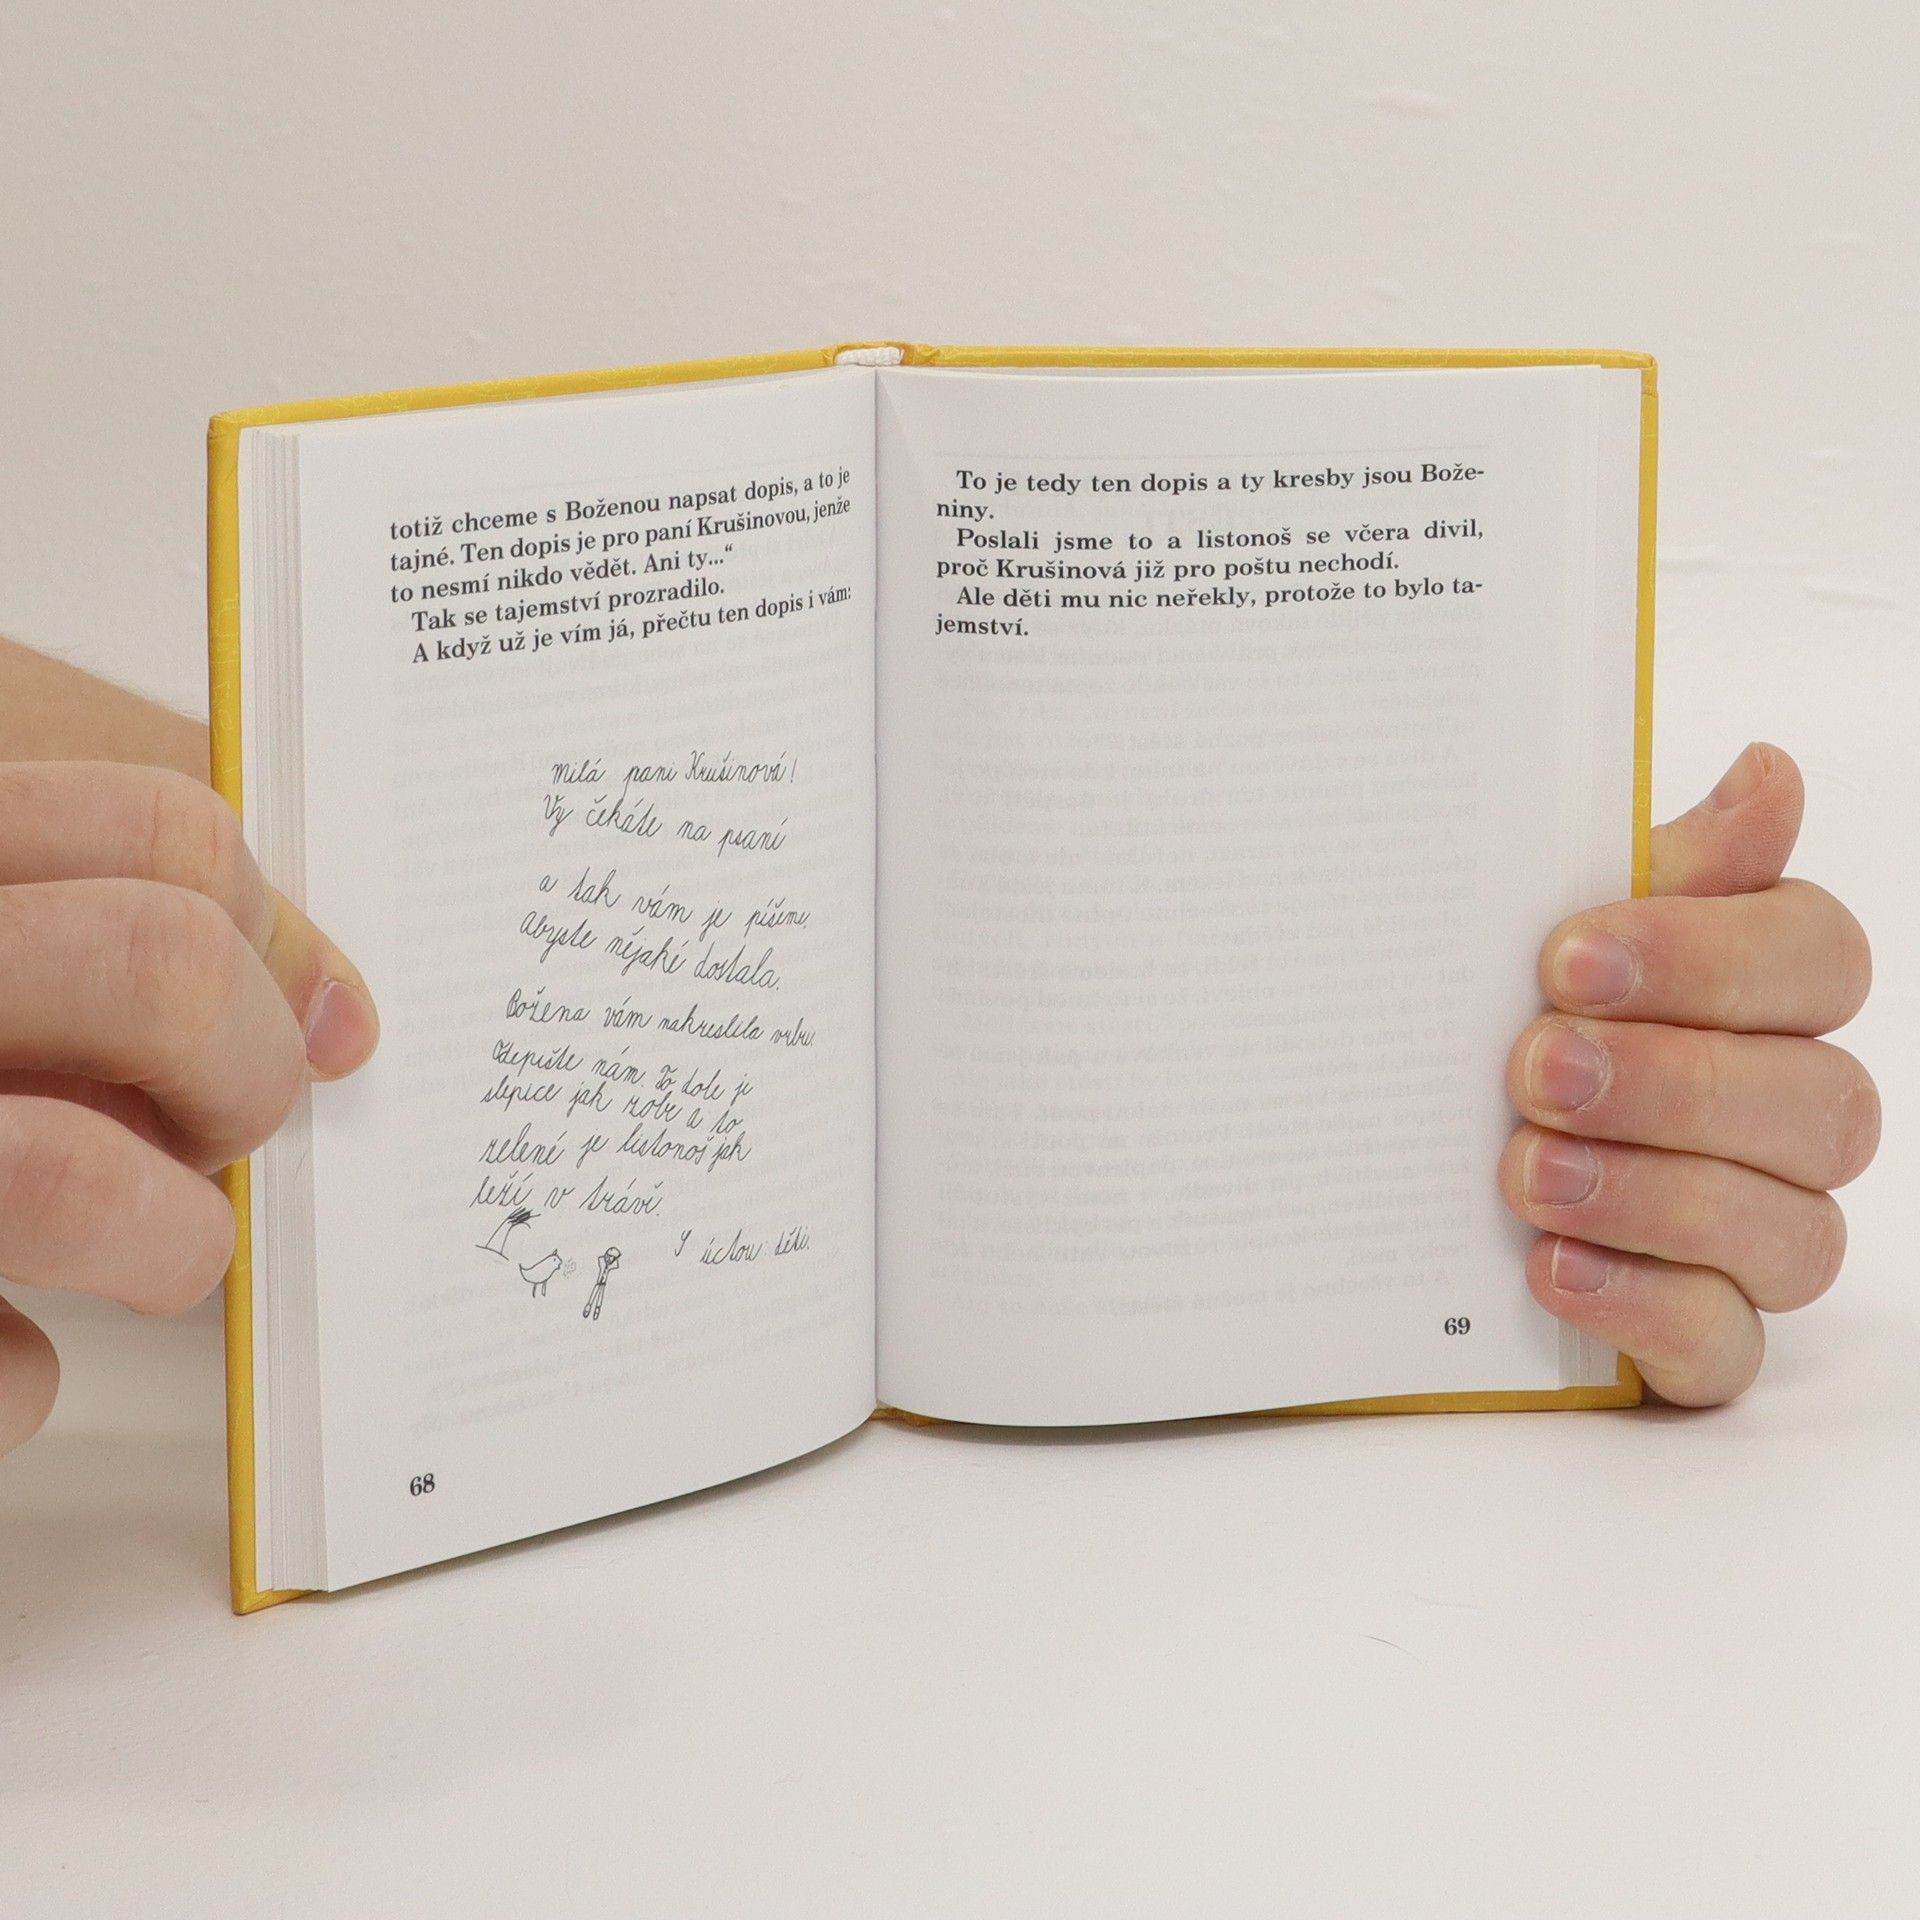 totiž chceme s Boženou napsat dopis, a to je
tajné. Ten dopis je pro paní Krušinovou, jenže
to nesmí nikdo vědět. Ani ty...“
Tak se tajemství prozradilo.
A když už je vím já, přečtu ten dopis i vám:
milá pani Krušinová!
Vy čekáte na psaní
a tak vám je píšeme,
abyste nějaké dostala.
Božena vám nakreslila vrbu.
Odepište nám. To dole je
slepice jak zobe a to
zelené je listonoš jak
leží v trávě.
S úctou děti.
68
To je tedy ten dopis a ty kresby jsou Bože-
niny.
Poslali jsme to a listonoš se včera divil,
proč Krušinová již pro poštu nechodí.
Ale děti mu nic neřekly, protože to bylo ta-
jemství.
69